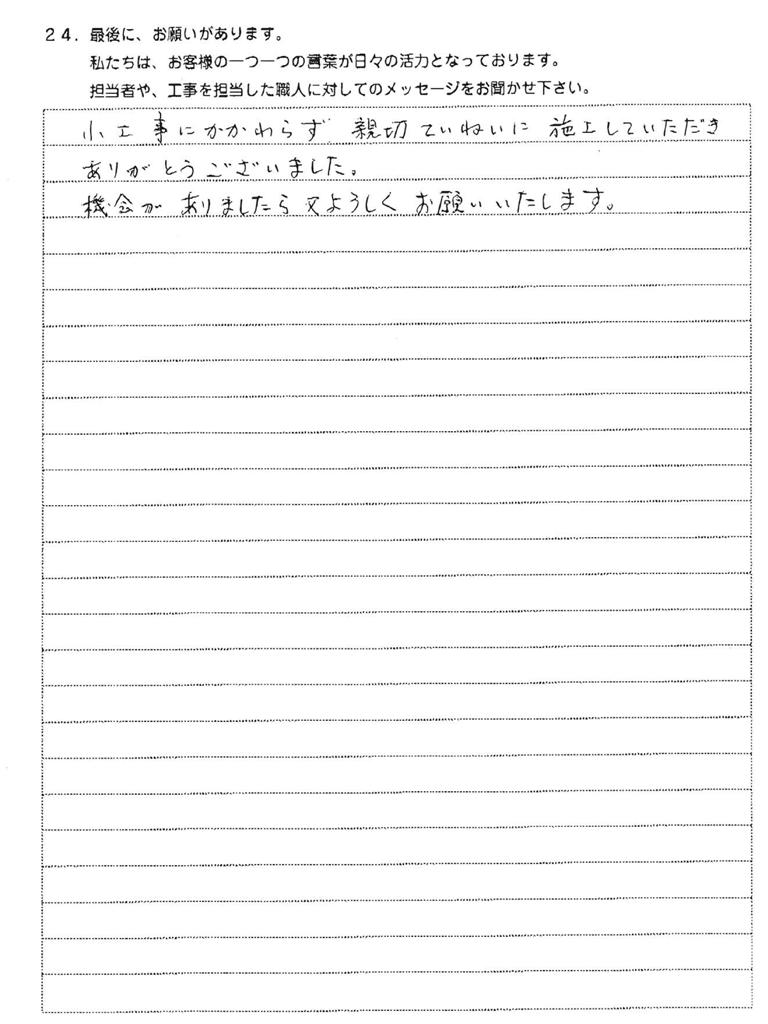 ２４．最後に、お願いがあります。
私たちは、お客様の一つ一つの言葉が日々の活力となっております。
担当者や、工事を担当した職人に対してのメッセージをお聞かせ下さい。
小工事にかかわらず 親切ていねいに 施工していただき
ありがとうございました。
機会が ありましたら又よろしく お願いいたします。